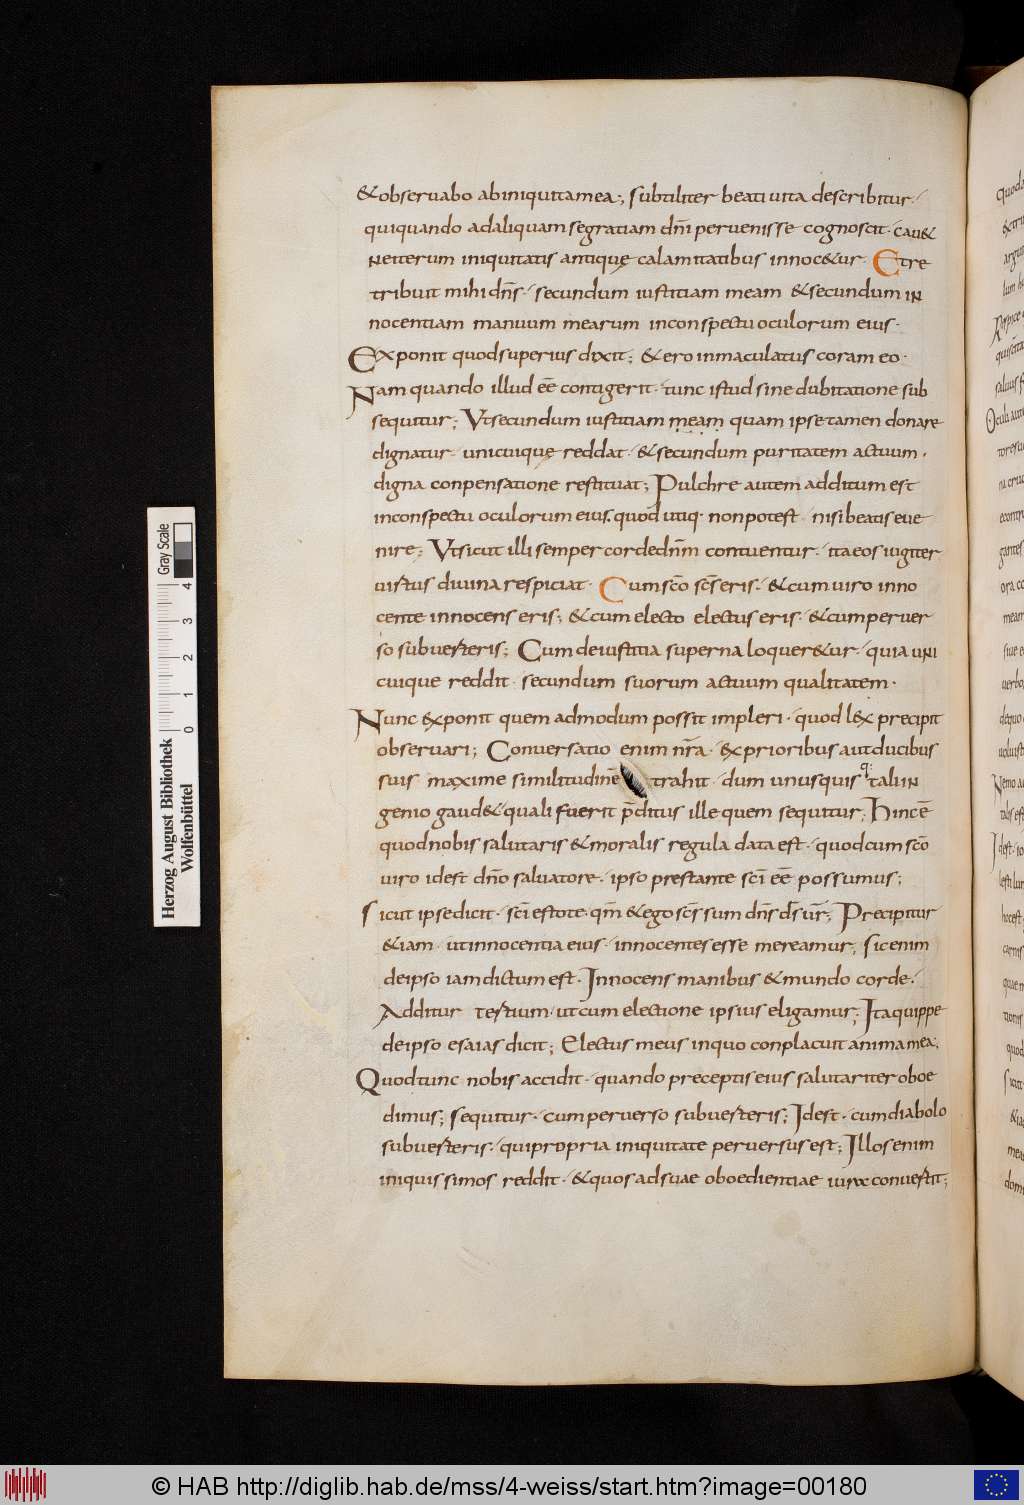 &obseruabo abiniquitamea., subtiliter beati uita describitur·
quiquando adaliquam segratiam dn̄i peruenisse cognoscit· cau&
neiterum iniquitatis antiquę calamitatibus innoc&ur· Etre
tribuit mihi dn̄s· secundum iustitiam meam &secundum in
nocentiam manuum mearum inconspectu oculorum eius·
Exponit quodsuperius dixit; &ero inmaculatus coram eo·
Nam quando illud eē contigerit· tunc istud sine dubitatione sub
sequitur; Vtsecundum iustitiam meam quam ipse tamen donare
dignatur· unicuique reddat· &secundum puritatem actuum·
digna conpensatione restituat; Pulchre autem additum est
inconspectu oculorum eius. quod utiq· non potest· nisi beatis eue
nire; Vtsicut illi semper corde dn̄m contuentur· ita eos iugiter
uirtus diuina respiciat· Cum sc̄o sc̄s eris· &cum uiro inno
cente innocens eris; &cum electo electus eris· &cum peruer
so subuerteris; Cum deiustitia superna loquer&ur· quia uni
cuique reddit· secundum suorum actuum qualitatem·
Nunc exponit quem admodum possit impleri· quod lex precipit
obseruari; Conuersatio enim nr̄a· exprioribus aut ducibus
suis maxime similitudinē trahit· dum unusquis q: tali in
genio gaud& quali fuerit p̄ditus ille quem sequitur; Hinc ē
quod nobis salutaris &moralis regula data est· quodcum sc̄o
uiro idest dn̄o saluatore· ipso prestante sc̄i eē possumus;
sicut ipse dicit· sc̄i estote· qm̄ &ego sc̄s sum dn̄s d̄s ur̄; Precipitur
&iam· ut innocentia eius· innocentes esse mereamur; sic enim
deipso iam dictum est· Innocens manibus &mundo corde·
Additur tertium· ut cum electione ipsius eligamur; Itaquippe
deipso esaias dicit; Electus meus inquo conplacuit anima mea;
Quod tunc nobis accidit· quando preceptis eius salutariter oboe
dimus; sequitur· cum peruerso subuerteris; Idest· cum diabolo
subuerteris· qui propria iniquitate peruersus est; Illos enim
iniquissimos reddit· &quos ad suae oboedientiae iura conuertit;
Herzog August Bibliothek
Wolfenbüttel
0 1 2 3 4
Gray Scale
© HAB http://diglib.hab.de/mss/4-weiss/start.htm?image=00180